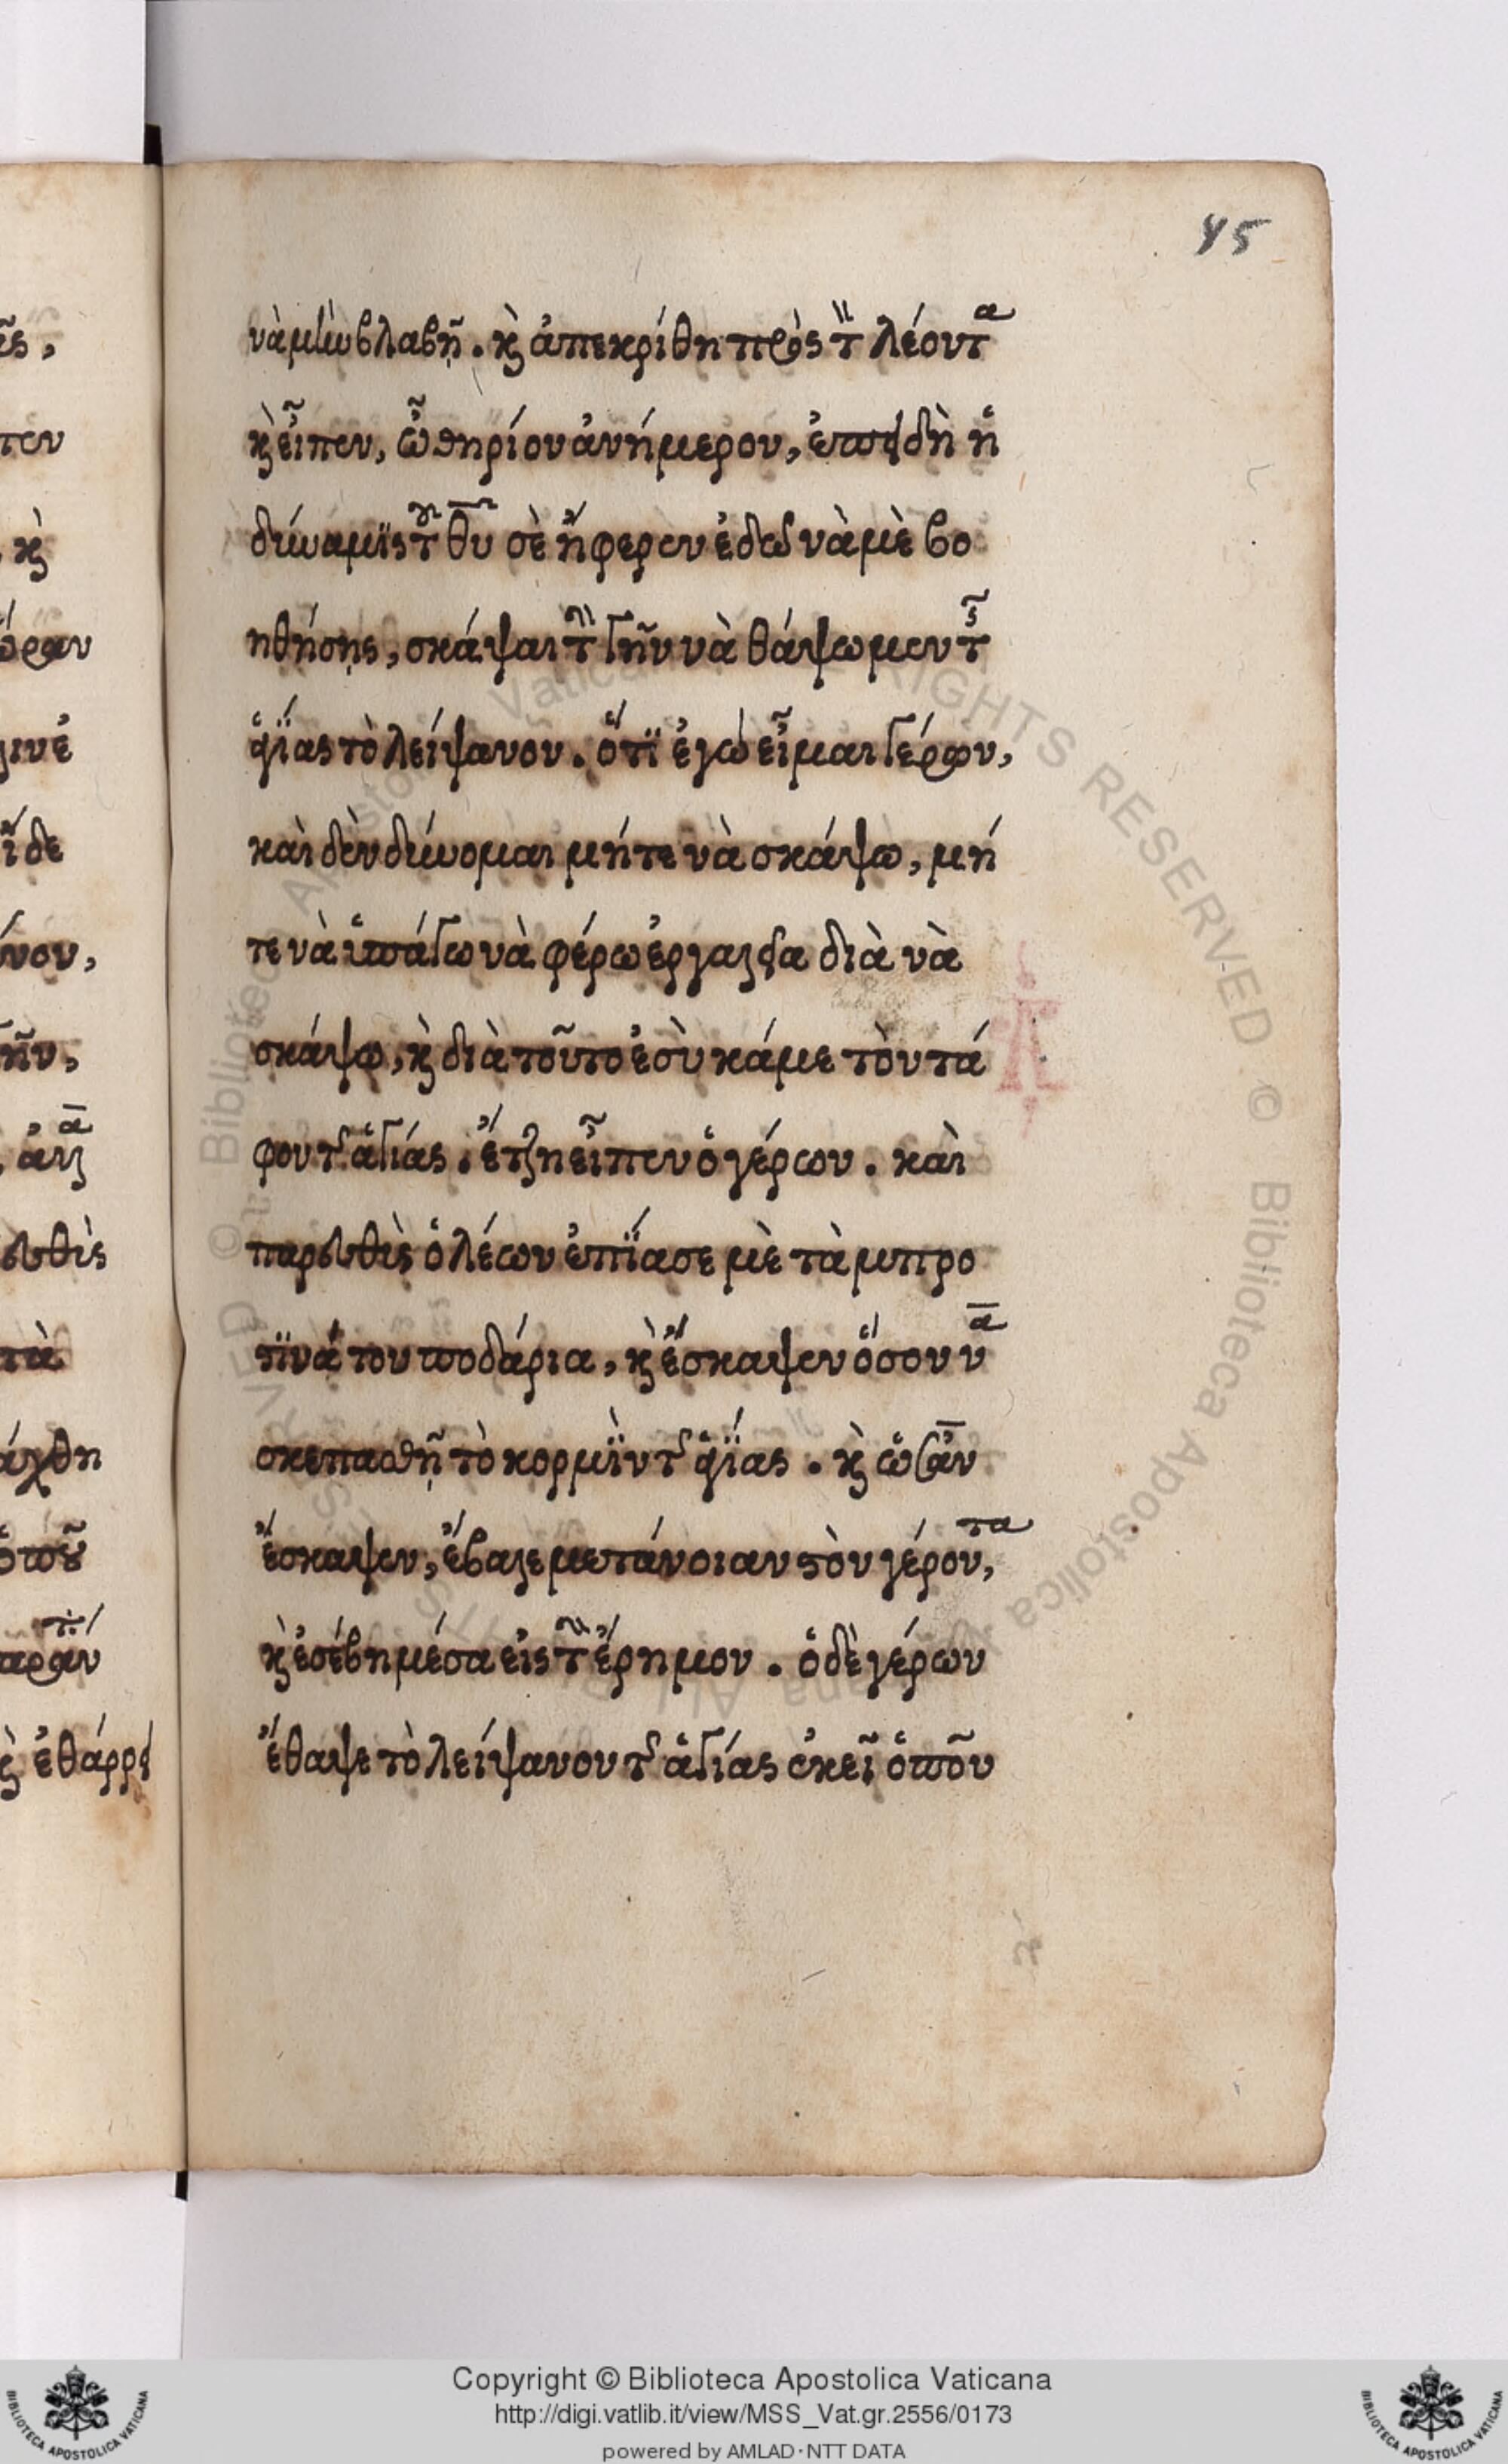 85
νὰ μὴν βλαβῇ. κὶ ἀπεκρίθη πρὸς τὸν λέοντα
κὶ εἶπεν, ὦ θηρίον ἀνήμερον, ἐπειδὴ ἡ
δύναμϊς τοῦ θυ σὲ ἤφερεν ἐδῶ νὰ μὲ βο
ηθήσῃς, σκάψαι τὴν γῆν νὰ θάψωμεν τῆς
ἁγΐας τὸ λείψανον. ὅτϊ ἐγὼ εἶμαι γέρων,
καὶ δὲν δύνομαι μήτε νὰ σκάψω, μή
τε νὰ ὑπάγω νὰ φέρω ἐργαλεῖα διὰ νὰ
σκάψω, κὶ διὰ τοῦτο ἐσὺ κάμε τὸν τά
φον τῆς ἁγίας. ἔτζη εἶπεν ὁ γέρων. καὶ
παρευθὺς ὁ λέων ἐπΐασε μὲ τὰ μπρο
στϊνά του ποδάρια, κὶ ἔσκαψεν ὅσον νὰ
σκεπασθῇ τὸ κορμῒν τῆς ἁγΐας. κὶ ὡσὰν
ἔσκαψεν, ἔβαλε μετάνοιαν στὸν γέροντα,
κὶ ἐσέβη μέσα εἰς τὴν ἔρημον. ὁ δὲ γέρων
ἔθαψε τὸ λείψανον τῆς ἁγίας ἐκεῖ ὁποῦ
Copyright © Biblioteca Apostolica Vaticana
http://digi.vatlib.it/view/MSS_Vat.gr.2556/0173
powered by AMLAD·NTT DATA